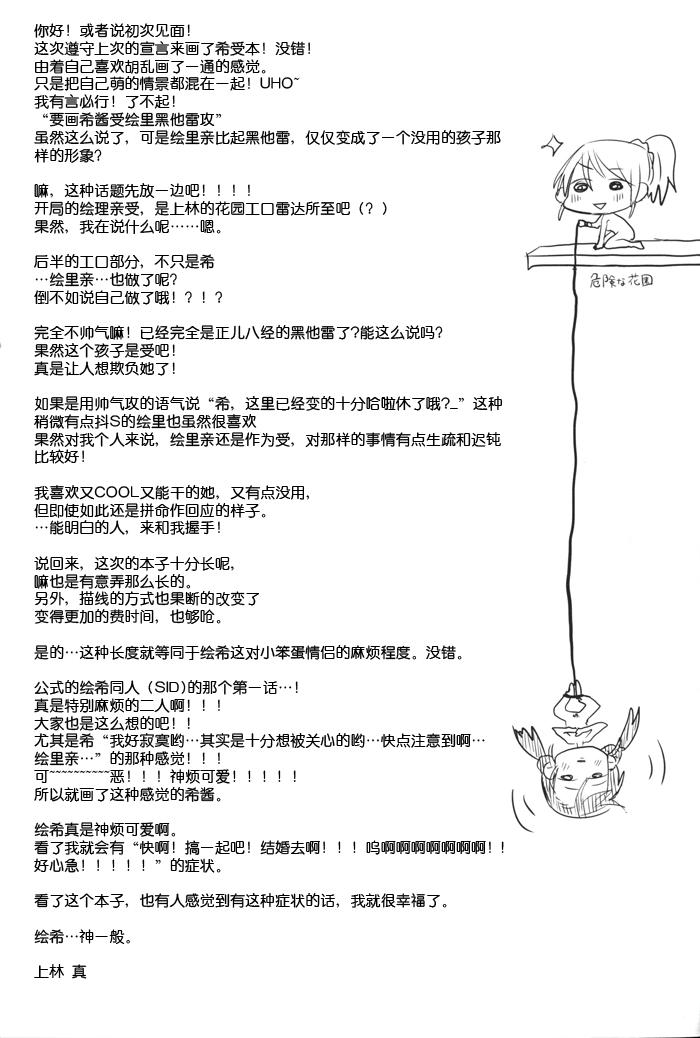 你好！或者说初次见面！
这次遵守上次的宣言来画了希受本！没错！
由着自己喜欢胡乱画了一通的感觉。
只是把自己萌的情景都混在一起！UHO~
我有言必行！了不起！
“要画希酱受绘里黑他雷攻”
虽然这么说了，可是绘里亲比起黑他雷，仅仅变成了一个没用的孩子那
样的形象?
嘛，这种话题先放一边吧！！！！
开局的绘理亲受，是上林的花园工口雷达所至吧（？）
果然，我在说什么呢……嗯。
后半的工口部分，不只是希
…绘里亲…也做了呢？
倒不如说自己做了哦！？！？
完全不帅气嘛！已经完全是正儿八经的黑他雷了?能这么说吗?
果然这个孩子是受吧！
真是让人想欺负她了！
如果是用帅气攻的语气说“希，这里已经变的十分哈啦休了哦?_”这种
稍微有点抖S的绘里也虽然很喜欢
果然对我个人来说，绘里亲还是作为受，对那样的事情有点生疏和迟钝
比较好！
我喜欢又COOL又能干的她，又有点没用，
但即使如此还是拼命作回应的样子。
…能明白的人，来和我握手！
说回来，这次的本子十分长呢，
嘛也是有意弄那么长的。
另外，描线的方式也果断的改变了
变得更加的费时间，也够呛。
是的…这种长度就等同于绘希这对小笨蛋情侣的麻烦程度。没错。
公式的绘希同人（SID)的那个第一话…！
真是特别麻烦的二人啊！！！
大家也是这么想的吧！！
尤其是希“我好寂寞哟…其实是十分想被关心的哟…快点注意到啊…
绘里亲…”的那种感觉！！！
可~~~~~~~~~~恶！！！神烦可爱！！！！！
所以就画了这种感觉的希酱。
绘希真是神烦可爱啊。
看了我就会有“快啊！搞一起吧！结婚去啊！！！呜啊啊啊啊啊啊啊！！
好心急！！！！！”的症状。
看了这个本子，也有人感觉到有这种症状的话，我就很幸福了。
绘希…神一般。
上林 真
危険な花園